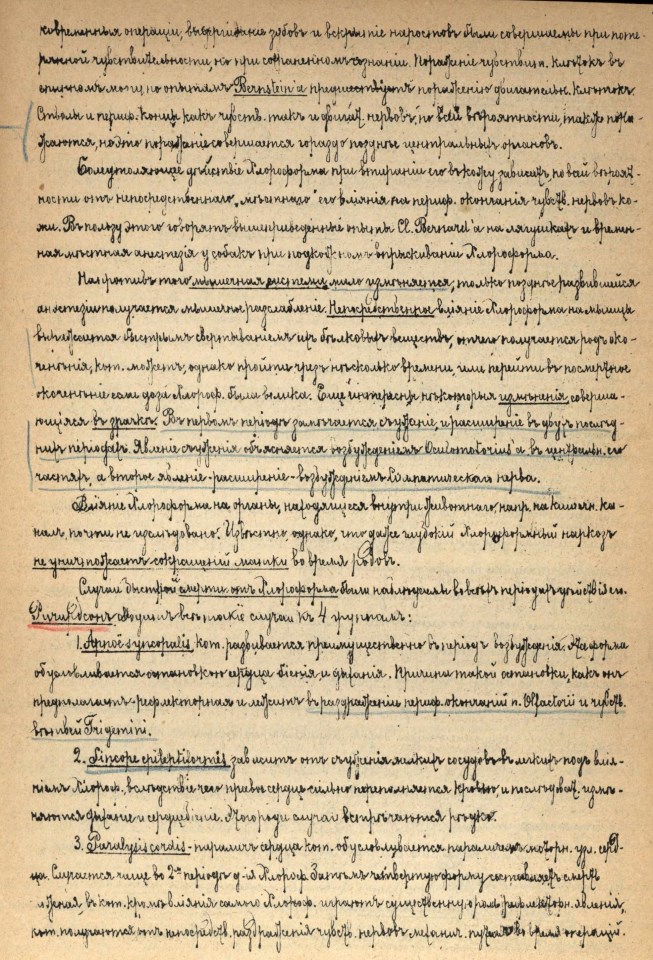 кожныя операціи, выдергиваніе зубовъ и вскрытіе наростовъ были совершаемы при поте-
рянной чувствительности, но при сохраненномъ сознаніи. Пораженіе чувствит. клѣтокъ въ
спинномъ мозгу, по опытамъ Bernstein'а предшествуетъ пораженію двигательн. клѣтокъ.
Стволы и периф. концы какъ чувств. такъ и двигат. нервовъ, по всей вѣроятности, также пора-
жаются, но это пораженіе совершается гораздо позднѣе центральныхъ органовъ.
Болеутоляющее дѣйствіе Хлороформа при втираніи его въ кожу зависитъ по всей вѣроят-
ности отъ непосредственнаго „мѣстнаго" его вліянія на периф. окончанія чувств. нервовъ ко-
жи. Въ пользу этого говорятъ вышеприведенные опыты Cl. Bernard'а на лягушкахъ и времен-
ная мѣстная анестезія у собакъ при подкожномъ впрыскиваніи Хлороформа.
Напротивъ того мышечная система мало измѣняется, только позднѣе развившейся
анэстезіи получается мышечное разслабленіе. Непосредственное вліяніе Хлороформа на мышцы
выражается быстрымъ свертываніемъ ихъ бѣлковыхъ веществъ, отчего получается родъ око-
ченѣнія, кот. можетъ, однако пройти чрезъ нѣсколько времени, или перейти въ посмертное
окоченѣніе если доза Хлороф. была велика. Еще интересны нѣкоторыя измѣненія, соверша-
ющіяся въ зрачкѣ. Въ первомъ періодѣ замѣчается съуженіе, и расширеніе въ двухъ послѣд-
нихъ періодахъ. Явленіе съуженія объясняется возбужденіемъ Oculomotorius'а въ центральн. его
частяхъ, а второе явленіе - расширеніе - возбужденіемъ Симпатическаго нерва.
Вліяніе Хлороформа на органы, находящіеся внутри животнаго, напр. на кишечн. ка-
налъ, почти не изслѣдовано. Извѣстно, однако, что даже глубокій Хлороформный наркозъ
не уничтожаетъ сокращеній матки во время родовъ.
Случаи быстрой смерти отъ Хлороформа были наблюдаемы во всѣхъ періодахъ дѣйствія его.
Ричардсонъ дѣлитъ всѣ такіе случаи къ 4 группамъ:
1. Apnoë syncopalis, кот. развивается преимущественно въ періодъ возбужденія. Эта форма
обусловливается остановкою сердца біенія и дыханія. Причина такой остановки, какъ онъ
предполагаетъ - рефлекторная и лежитъ въ раздраженіе периф. окончаній n. Olfactorii и чувств.
вѣтвей Trigemini.
2. Sincope epileptiformis зависитъ отъ съуженія мелкихъ сосудовъ въ легкихъ подъ влія-
ніемъ Хлороф. вслѣдствіе чего правое сердце сильно переполняется кровью, и послѣдоват. измѣ-
няются дыханіе и сердцебіеніе. Этого рода случаи встрѣчаются рѣдко.
3. Paralysis cordis - параличъ сердца кот. обусловливается параличемъ моторн. узл. серд-
ца. Случается чаще во 2мъ періодѣ д-ія Хлороф. Затѣмъ четвертую форму составляетъ смерть
въ кот. кромѣ вліянія самого Хлороф. играютъ существенную роль рефлекторн. явленія,
кот. получаются отъ непосредств. раздраженія чувств. нервовъ механич. путемъ во время операцій.